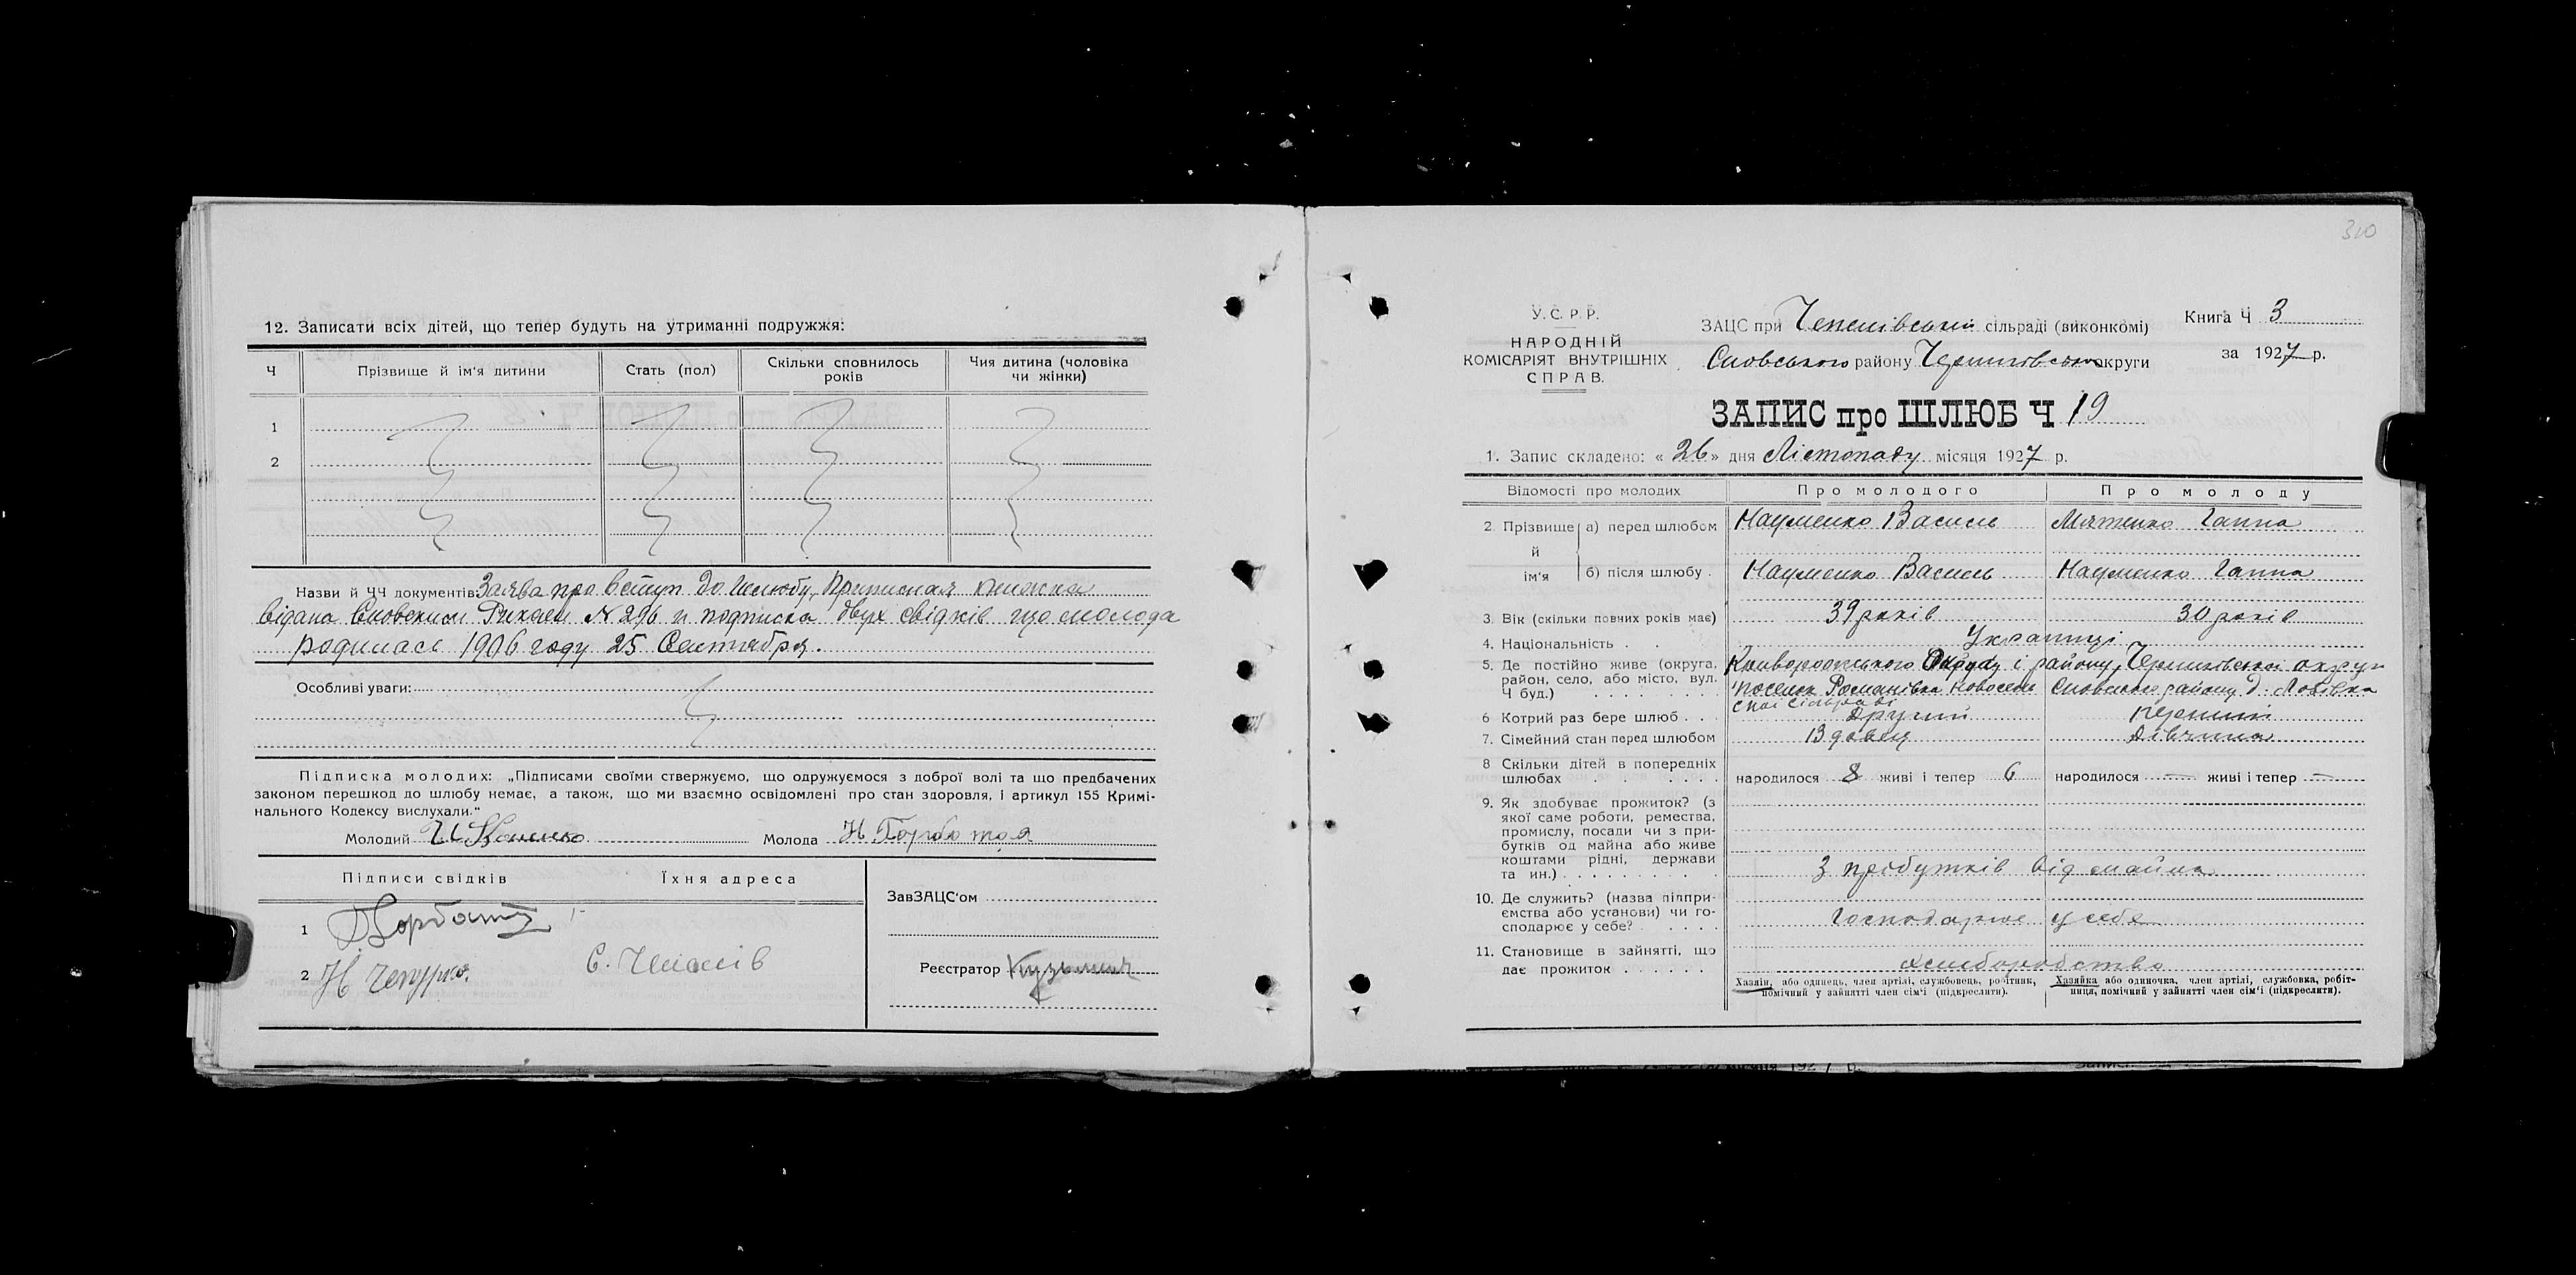 12. Записати всіх дітей, що тепер будуть на утриманні подружжя:
Ч Прізвище й ім'я дитини Стать (пол) Скільки сповнилось років Чия дитина (чоловіка чи жінки)
1
2
Назви й ЧЧ документів: Заява про вступ до шлюбу, приписная книжка
видана Сновским Риком № 296 и подписка двух свідків що молода
родилась 1906 году 25 Сентября.
Особливі уваги:
Підписка молодих: „Підписами своїми стверджуємо, що одружуємося з доброї волі та що предбачених
законом перешкод до шлюбу немає, а також, що ми взаємно освідомлені про стан здоровля, і артикул 155 Кримі-
нального Кодексу вислухали."
Молодий Молода Н Горбатая
Підписи свідків Їхня адреса
ЗавЗАЦС'ом
1 Горбатий
2 Н Чепурна.
Реєстратор
310
У.С.Р.Р.
НАРОДНІЙ
КОМІСАРІЯТ ВНУТРІШНІХ
СПРАВ.
ЗАЦС при сільраді (виконкомі)
Сновського району Чернигівської округи
Книга Ч 3
за 1927 р.
ЗАПИС про ШЛЮБ Ч 19
1. Запис складено: « 26 » дня Лістопаду місяця 1927 р.
Відомості про молодих Про молодого Про молоду
2. Прізвище й ім'я а) перед шлюбом Науменко Василь Ганна
б) після шлюбу Науменко Василь Науменко Ганна
3. Вік (скільки повних років має) 39 років 30 років
4. Національність Українці
5. Де постійно живе (округа, район, село, або місто, вул. Ч буд.)
Криворожського Округу і району, Чернигівської округи
поселок Романівка Новосель Сновського району д. Лосівка
ской сільраді
6 Котрий раз бере шлюб Другий перший
7. Сімейний стан перед шлюбом Вдовец Дівчина
8 Скільки дітей в попередніх шлюбах народилося 8 живі і тепер 6 народилося — живі і тепер —
9. Як здобуває прожиток? (з
якої саме роботи, ремества,
промислу, посади чи з при-
бутків од майна або живе
коштами рідні, держави
та ин.) З прібутків від майна
10. Де служить? (назва підпри-
ємства або установи) чи го-
сподарює у себе? Господарює у себе
11. Становище в зайнятті, що
дає прожиток хліборобство
Хазяїн, або одинець, член артілі, службовець, робітник,
помічний у зайнятті член сім'ї (підкреслити).
Хазяйка або одиночка, член артілі, службовка, робіт-
ниця, помічний у зайнятті член сім'ї (підкреслити).